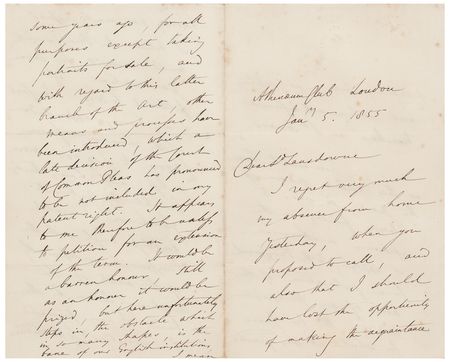 Athenæum Club London
Jan. 5. 1855
Dear Ld Lansdowne
I regret very much
my absence from home
Yesterday, when you
proposed to call, and
also that I should
have lost the opportunity
of making the acquaintance
some years ago, for all
purposes except taking
portraits for sale, and
with regard to this latter
branch of the Art, other
means and processes have
been introduced, which a
late decision of the Court
of Common Pleas has pronounced
to be not included in my
patent right. It appears
to me therefore to be useless
to petition for an extension
of the term. It would be
a barren honour, still
as an honour it would be
prized, but here unfortunately
steps in the obstacle which
in so many shapes, is the
bane of our English institutions,
I mean